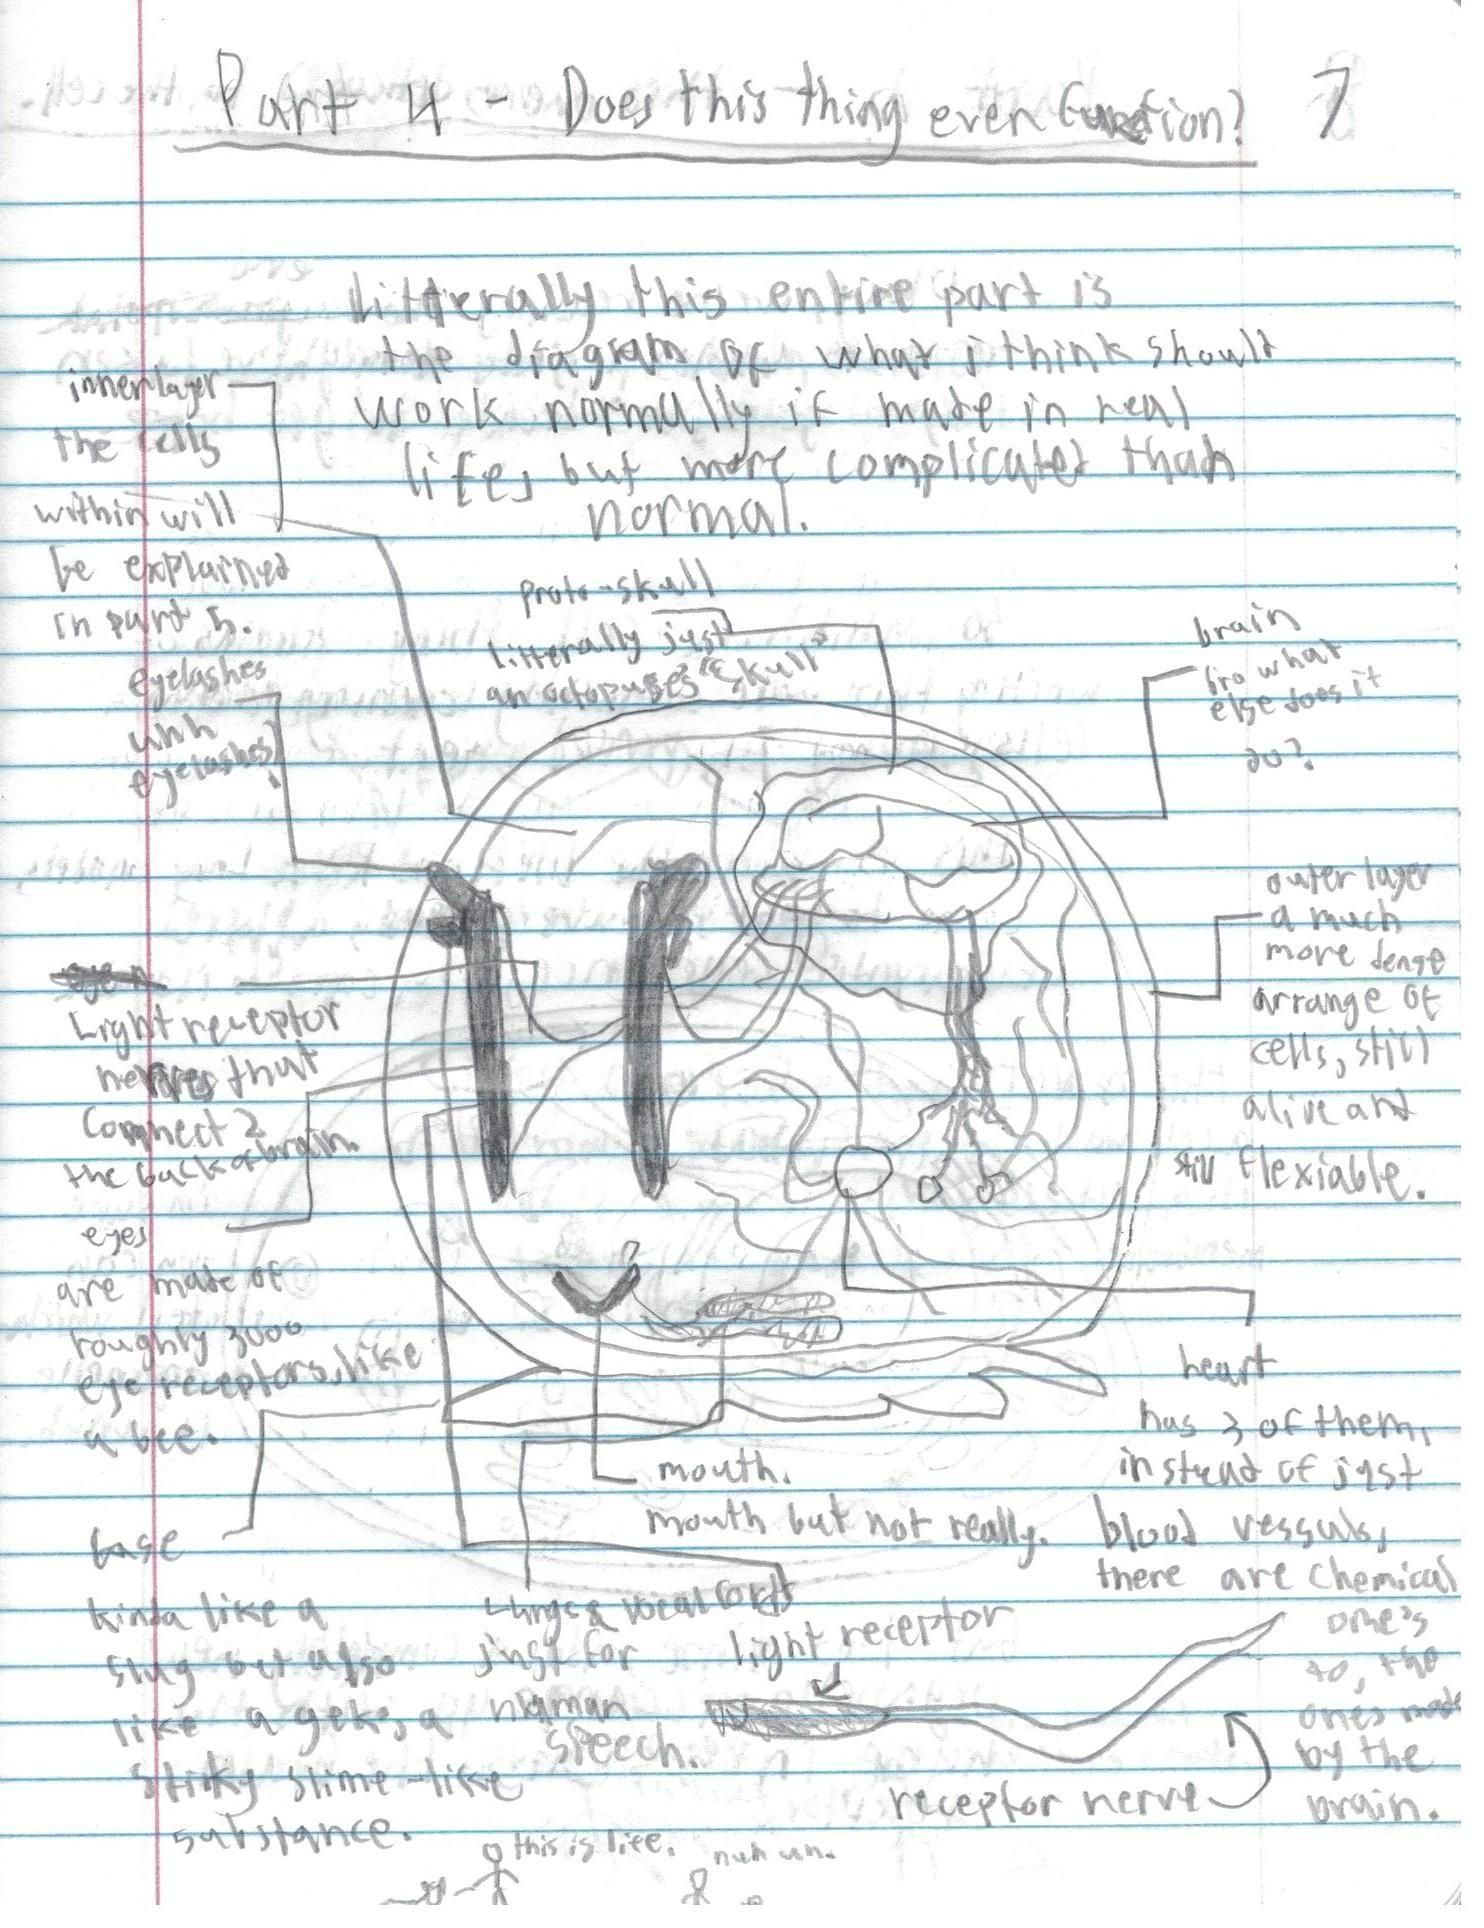 Part 4 - Does this thing even function? 7
Litterally this entire part is
the diagram of what i think should
work normally if made in real
life, but more complicated than
normal.
inner layer
the cells
within will
be explained
in part 5.
eyelashes
uhh
eyelashes!
proto-skull
litterally just
an octopuses "skull"
brain
bro what
else does it
do?
outer layer
a much
more dense
arrange of
cells, still
alive and
still flexiable.
Light receptor
nerves that
connect 2
the back of brain.
eyes
are made of
roughly 3000
eye receptors, like
a bee.
base
kinda like a
slug but also
like a geko, a
sticky slime-like
substance.
mouth.
mouth but not really.
Lungs & vocal cords
just for
human
speech.
heart
has 3 of them,
instead of just
blood vessuls,
there are chemical
one's
to, the
ones made
by the
brain.
light receptor
receptor nerve
this is life.
nuh uh.